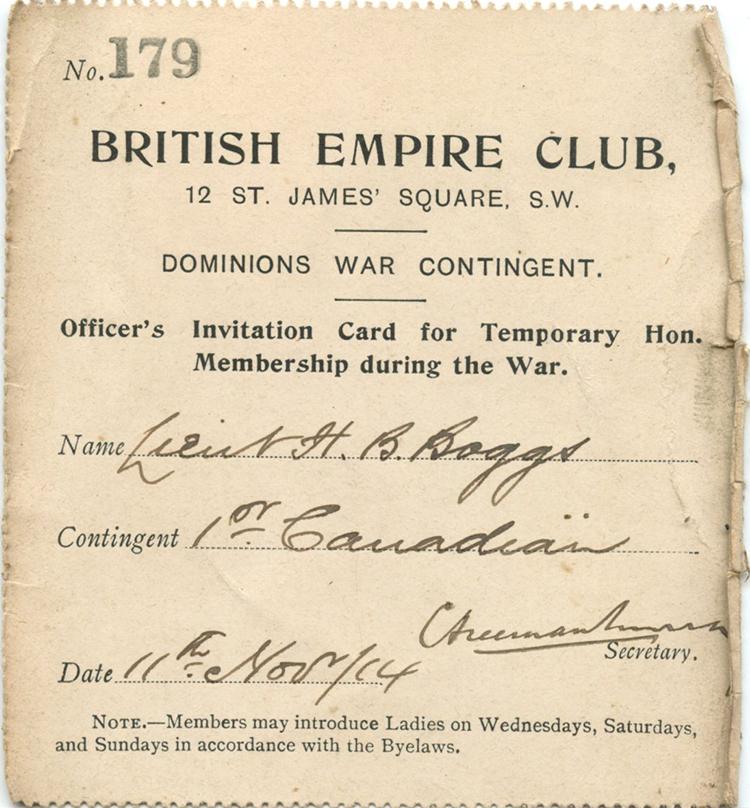 No. 179
BRITISH EMPIRE CLUB,
12 ST. JAMES' SQUARE, S.W.
DOMINIONS WAR CONTINGENT.
Officer's Invitation Card for Temporary Hon.
Membership during the War.
Name Lieut H. B. Boggs
Contingent 1st Canadian
Secretary.
Date 11th Nov/14
NOTE.—Members may introduce Ladies on Wednesdays, Saturdays,
and Sundays in accordance with the Byelaws.